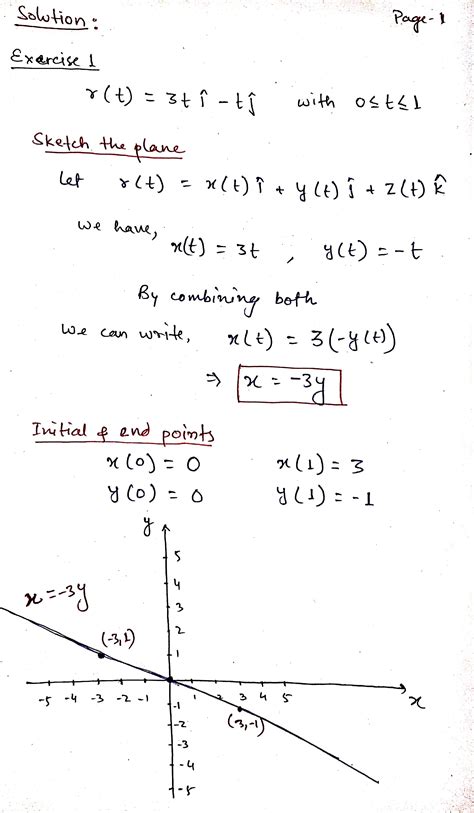 Solution :
Page-1
Exercise 1
r(t) = 3t î - tĵ with 0≤t≤1
Sketch the plane
Let r(t) = x(t) î + y(t) ĵ + z(t) k̂
we have,
x(t) = 3t , y(t) = -t
By combining both
we can write, x(t) = 3(-y(t))
⇒ x = -3y
Initial & end points
x(0) = 0 x(1) = 3
y(0) = 0 y(1) = -1
y
5
4
x = -3y
3
2
(-3,1)
1
-5 -4 -3 -2 -1 1 2 3 4 5 x
-1
-2 (3,-1)
-3
-4
-5